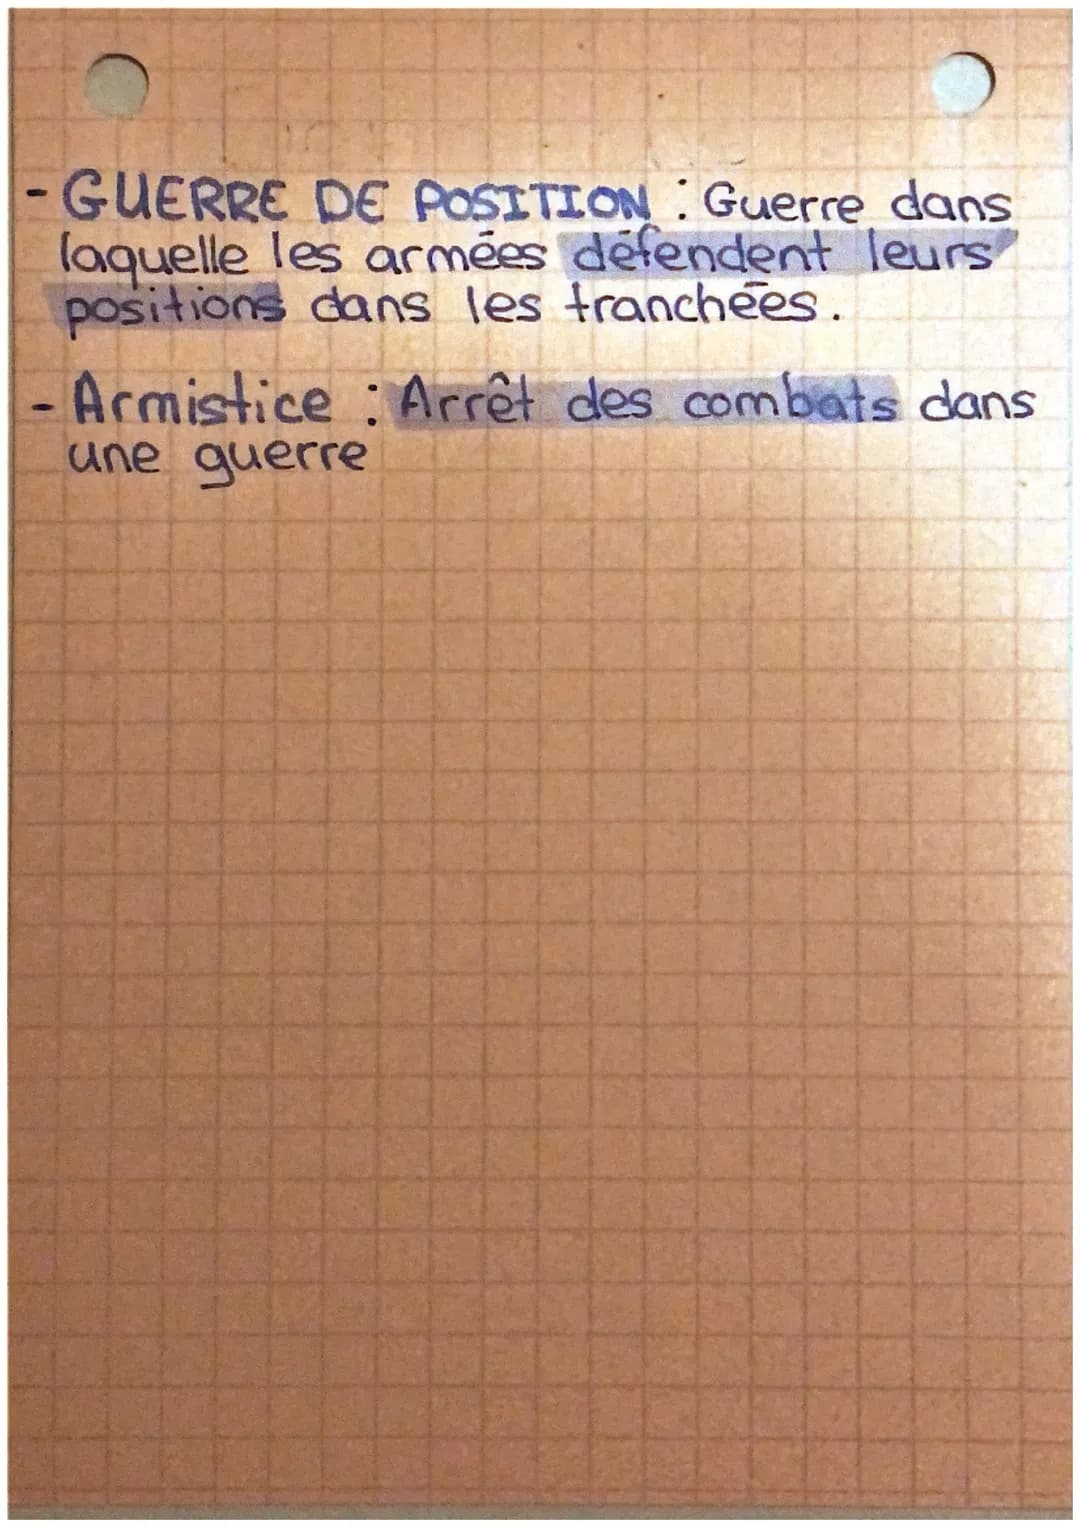 - GUERRE DE POSITION : Guerre dans
laquelle les armées défendent leurs
positions dans les tranchées.
- Armistice : Arrêt des combats dans
une guerre